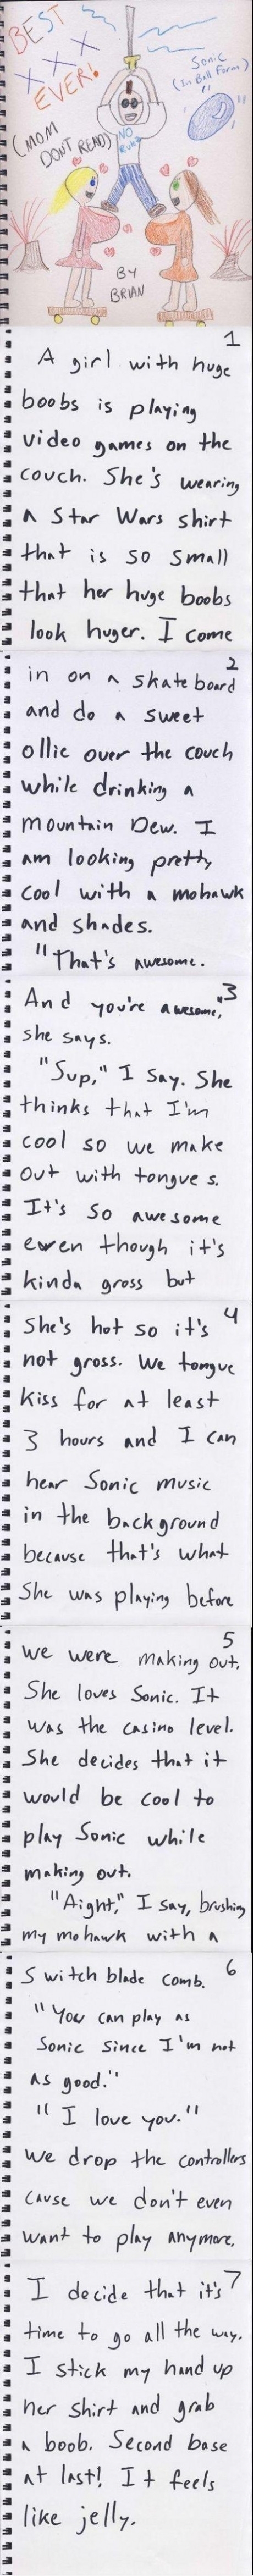 BEST
XXX
EVER!
(MOM
DON'T READ)
Sonic
(In Ball Form)
NO
Rules
BY
BRIAN
1
A girl with huge
boobs is playing
video games on the
couch. She's wearing
a Star Wars shirt
that is so small
that her huge boobs
look huger. I come
2
in on a skateboard
and do a sweet
ollie over the couch
while drinking a
Mountain Dew. I
am looking pretty
cool with a mohawk
and shades.
"That's awesome.
3
And you're awesome,"
she says.
"Sup," I say. She
thinks that I'm
cool so we make
out with tongues.
It's so awesome
even though it's
kinda gross but
4
She's hot so it's
not gross. We tongue
kiss for at least
3 hours and I can
hear Sonic music
in the background
because that's what
She was playing before
5
we were making out.
She loves Sonic. It
was the casino level.
She decides that it
would be cool to
play Sonic while
making out.
"Aight," I say, brushing
my mohawk with a
6
Switch blade comb.
"You can play as
Sonic since I'm not
as good."
"I love you."
We drop the controllers
cause we don't even
want to play anymore.
7
I decide that it's
time to go all the way.
I stick my hand up
her shirt and grab
a boob. Second base
at last! It feels
like jelly.